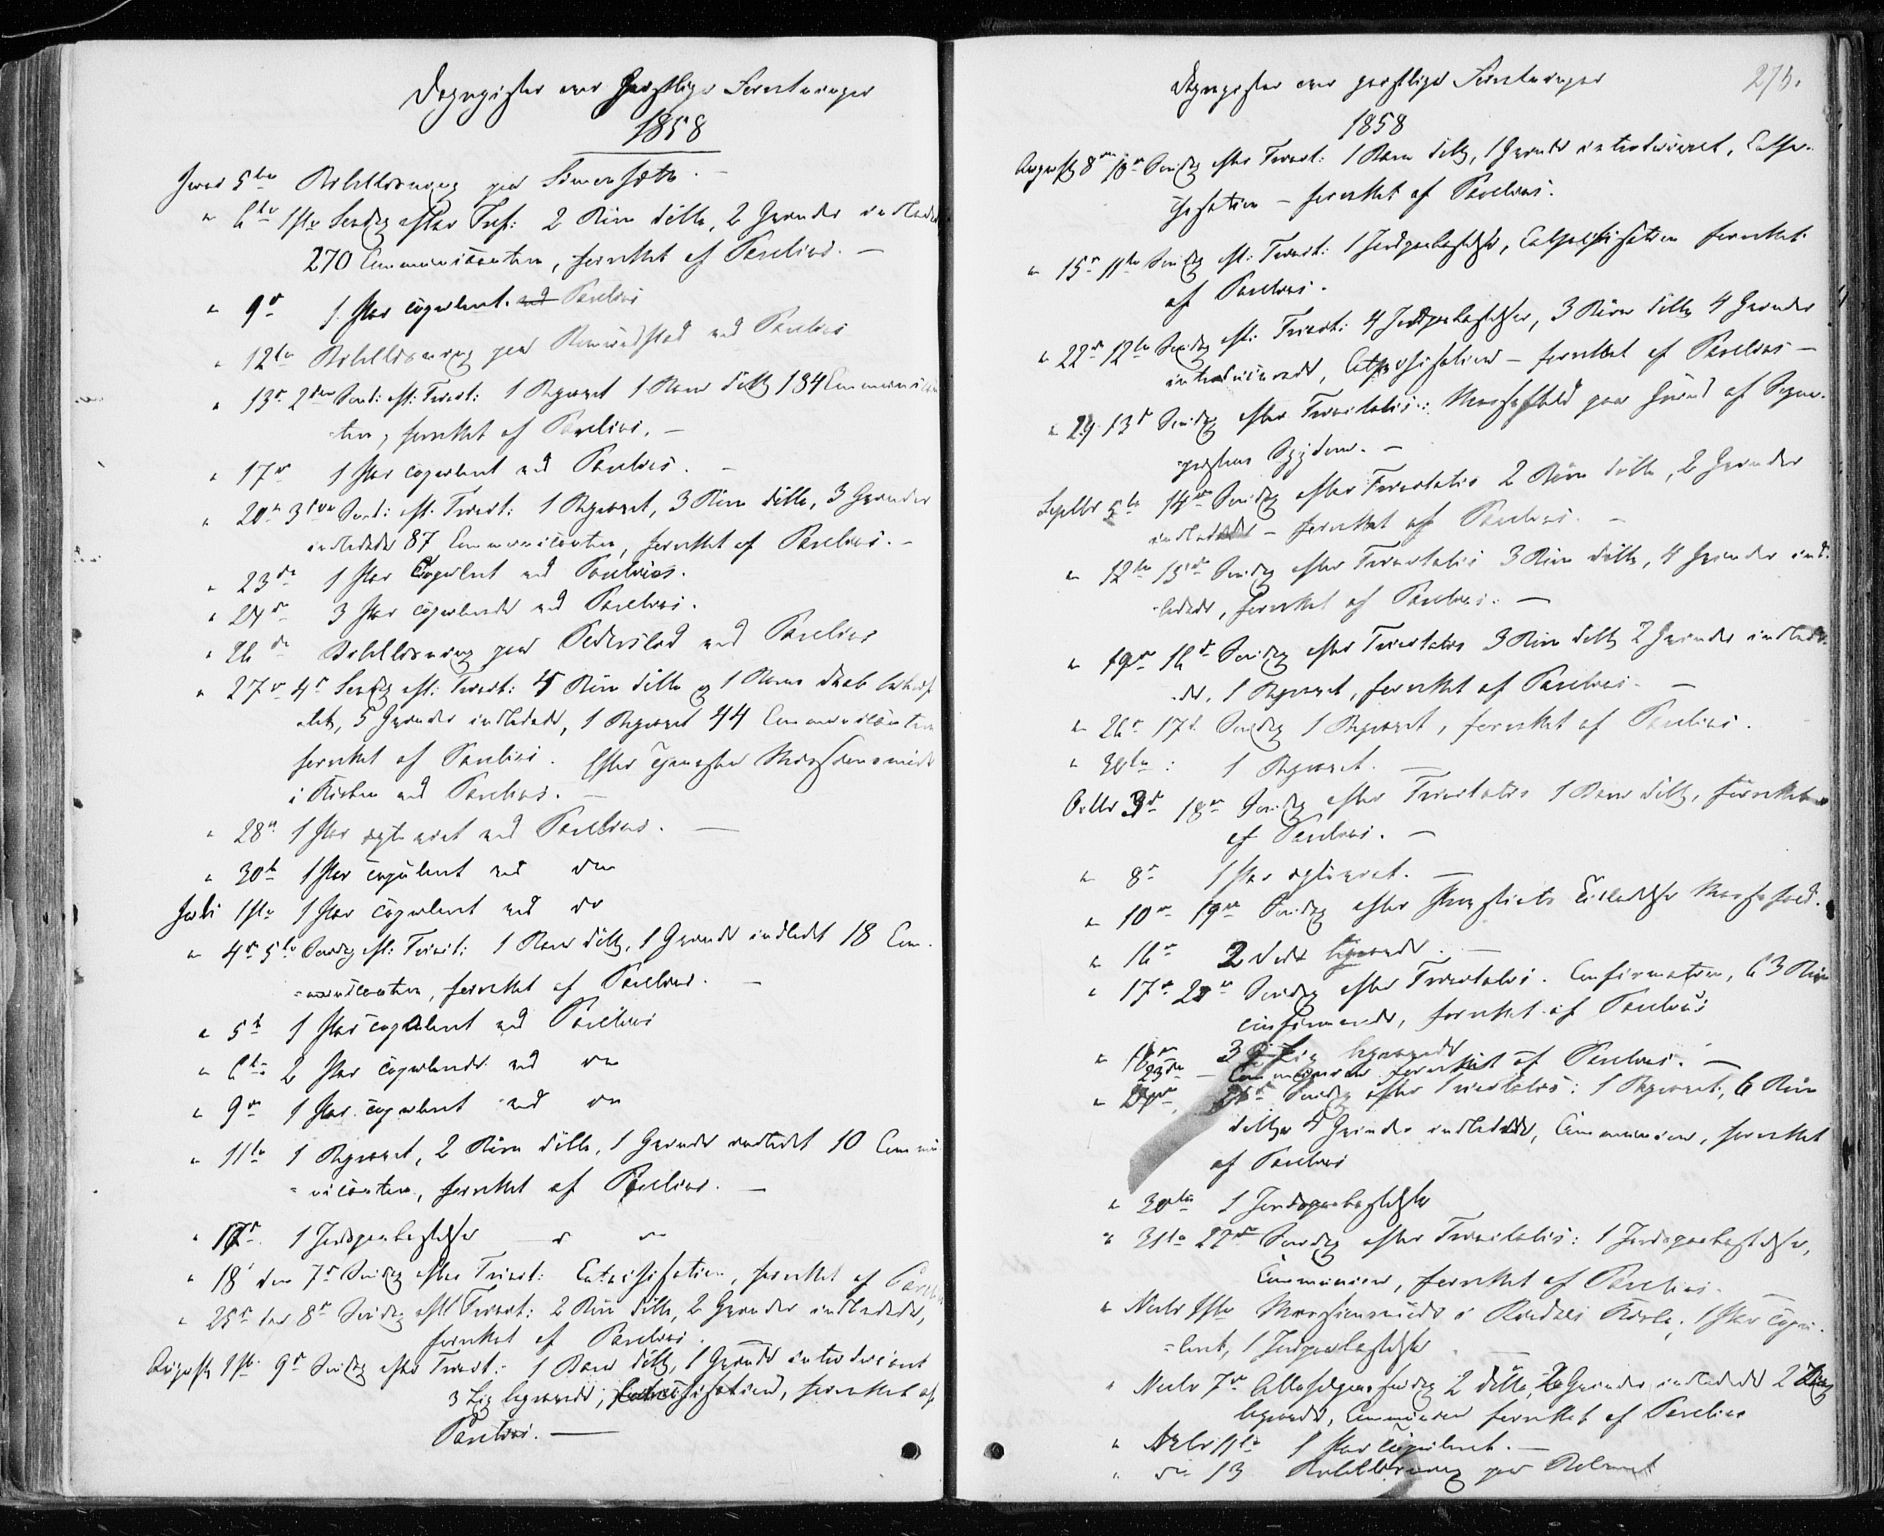 Dagregister over Geistlige Forretninger
1858
Juni 5te Bibellæsning paa Simensæth. —
" 6te 1ste Søndag efter Tref: 2 Børn døbte, 2 Qvinder indledede
270 Communicanter, forrettet af Parelius. —
" 9de 1 Par copuleret ved Parelius
" 12te Bibellæsning paa ved Parelius
" 13de 2den Sønd: eft: Trinit: 1 Begravet 1 Barn døbt 134 Communican
ter, forrettet af Parelius. —
" 17de 1 Par copuleret ved Parelius. —
" 20de 3die Sønd: eft: Trinit: 1 Begravet, 3 Børn døbte, 3 Qvinder
indledede 87 Communicanter, forrettet af Parelius. —
" 23de 1 Par Copuleret ved Parelius.
" 24de 3 Par copulerede ved Parelius.
" 26de Bibellæsning paa Pederslad ved Parelius
" 27de 4de Søndag eft: Trinit: 4 Børn døbte og 1 Barns Daab
5 Qvinder indledede, 1 Begravet 44 Communicanter
forrettet af Parelius. Efter Tjenesten Missionsmøde
i Kirken ved Parelius. —
" 28de 1 Par ægteviet ved Parelius. —
" 30te 1 Par copuleret ved do
Juli 1ste 1 Par copuleret ved do
" 4de 5te Søndag eft: Trinit: 1 Barn døbt, 1 Qvinde indledet 18 Com-
=municanter, forrettet af Parelius. —
" 5te 1 Par copuleret ved Parelius
" 6te 2 Par copulerede ved do
" 9de 1 Par copuleret ved do
" 11te 1 Begravet, 2 Børn døbte, 1 Qvinde indledet 10 Commu
=nicanter, forrettet af Parelius. —
" 17de 1 Jordpaakastelse — " —
" 18 den 7de Søndag efter Trinit: Catechisation, forrettet af Parelius
" 25de den 8de Søndag efter Trinit: 2 Børn døbte, 2 Qvinder indledede,
forrettet af Parelius.
August 1ste 9de Søndag efter Trinit: 1 Barn døbt, 1 Qvinde introduceret
3 Lig begravede, Catechisation, forrettet af
Parelius. —
Dagregister over geistlige Forretninger 276.
1858
August 8de 10de Søndag efter Trinit: 1 Barn døbt, 1 Qvinde introduceret, Cate-
chisation — forrettet af Parelius.
" 15de 11te Søndag eft: Trinit: 1 Jordpaakastelse, Catechisation forrettet
af Parelius.
" 22de 12te Søndag eft: Trinit: 4 Jordpaakastelser, 3 Børn døbte 4 Qvinder
introducerede, Catechisation — forrettet af Parelius —
" 29 13de Søndag efter Trinitatis: Messefald paa Grund af Sogne-
præstens Sygdom. —
Septbr 5te 14de Søndag efter Trinitatis 2 Børn døbte, 2 Qvinder
indledede — forrettet af Parelius. —
" 12te 15de Søndag efter Trinitatis 3 Børn døbte, 4 Qvinder ind-
ledede, forrettet af Parelius. —
" 19de 16de Søndag efter Trinitatis 3 Børn døbte 2 Qvinder indlede-
de, 1 Begravet, forrettet af Parelius. —
" 26de 17de Søndag 1 Begravet, forrettet af Parelius.
" 30te : 1 Begravet. —
Octbr 3de 18de Søndag efter Trinitatis 1 Barn døbt, forrettet
af Parelius. —
" 8de 1 Par ægteviet. —
" 10de 19de Søndag efter Messefald.
" 16de 2de Døde begravede. —
" 17de 20de Søndag efter Trinitatis. Confirmation, 63 Børn
confirmerede, forrettet af Parelius
" 18de 3 Lig begravede
23de — Communion forrettet af Parelius. —
" 24de 21de Søndag efter Trinitatis: 1 Begravet, 6 Børn
døbte 4 Qvinder indledede, Communion, forrettet
af Parelius
" 30te 1 Jordpaakastelse
" 31te 22de Søndag efter Trinitatis: 1 Jordpaakastelse,
Communion, forrettet af Parelius. —
" Novbr 1ste Missionsmøde i Kirke, 1 Par copu-
=leret, 1 Jordpaakastelse
" Novbr 7de Allehelgenssøndag 2 døbte, 2 Qvinder indledede 2 Lig
begravede, Communion forrettet af Parelius
" Novbr 11te 1 Par copuleret. —
" do 13 Bibellæsning paa